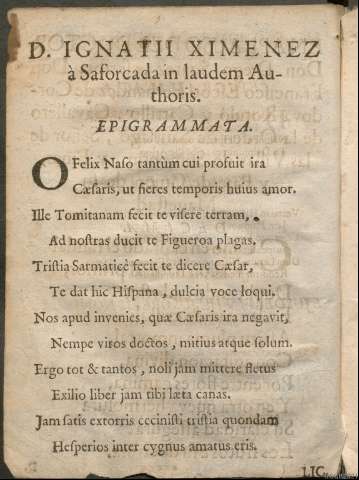 D. IGNATII XIMENEZ
à Saforcada in laudem Au-
thoris.
EPIGRAMMATA.
O Felix Naso tantùm cui profuit ira
Cæsaris, ut fieres temporis huius amor.
Ille Tomitanam fecit te visere terram,
Ad nostras ducit te Figueroa plagas.
Tristia Sarmaticè fecit te dicere Cæsar,
Te dat hic Hispana, dulcia voce loqui.
Nos apud invenies, quæ Cæsaris ira negavit,
Nempe viros doctos, mitius atque solum.
Ergo tot & tantos, noli jam mittere fletus
Exilio liber jam tibi læta canas.
Jam satis extorris cecinisti tristia quondam
Hesperios inter cygnus amatus eris.
LIC.